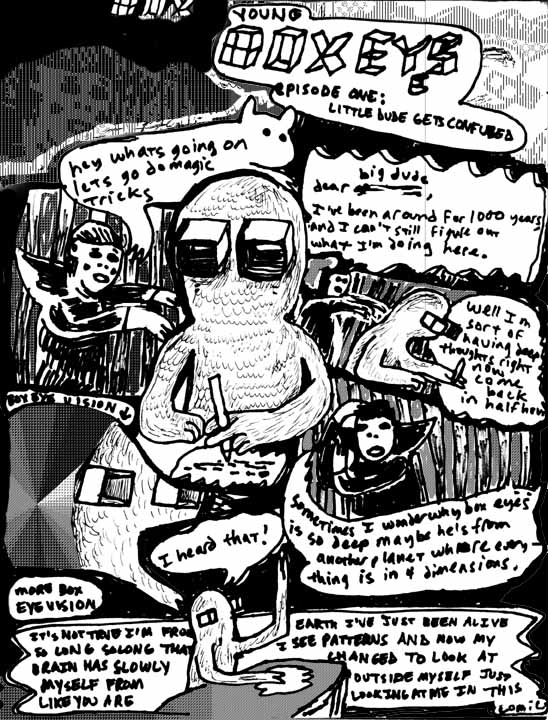 YOUNG
BOX EYES
EPISODE ONE:
LITTLE DUDE GETS CONFUSED
hey whats going on
lets go do magic
tricks
big dude
dear ,
I've been around for 1000 years
and I can't still figure out
what I'm doing here.
Well I'm
sort of
having deep
thoughts right
now
come
back
in half hour
BOX EYE VISION
sometimes I wonder why box eyes
is so deep maybe he's from
another planet where every-
thing is in 4 dimensions.
I heard that!
MORE BOX
EYE VISION
IT'S NOT TRUE I'M FRO EARTH I'VE JUST BEEN ALIVE
SO LONG SOLONG THA I SEE PATTERNS AND NOW MY
BRAIN HAS SLOWLY CHANGED TO LOOK AT
MYSELF FROM OUTSIDE MYSELF JUST
LIKE YOU ARE LOOKING AT ME IN THIS
COMIC